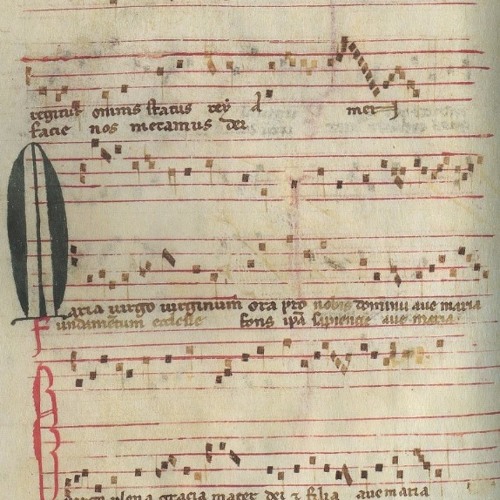 regitur omnis status rey d mer
facie nos metamus dei
Maria virgo virginum ora pro nobis dominu aue maria
Fundametum ecclesie fons ipa sapiencie aue maria
plena gracia mater dei z filia aue maria